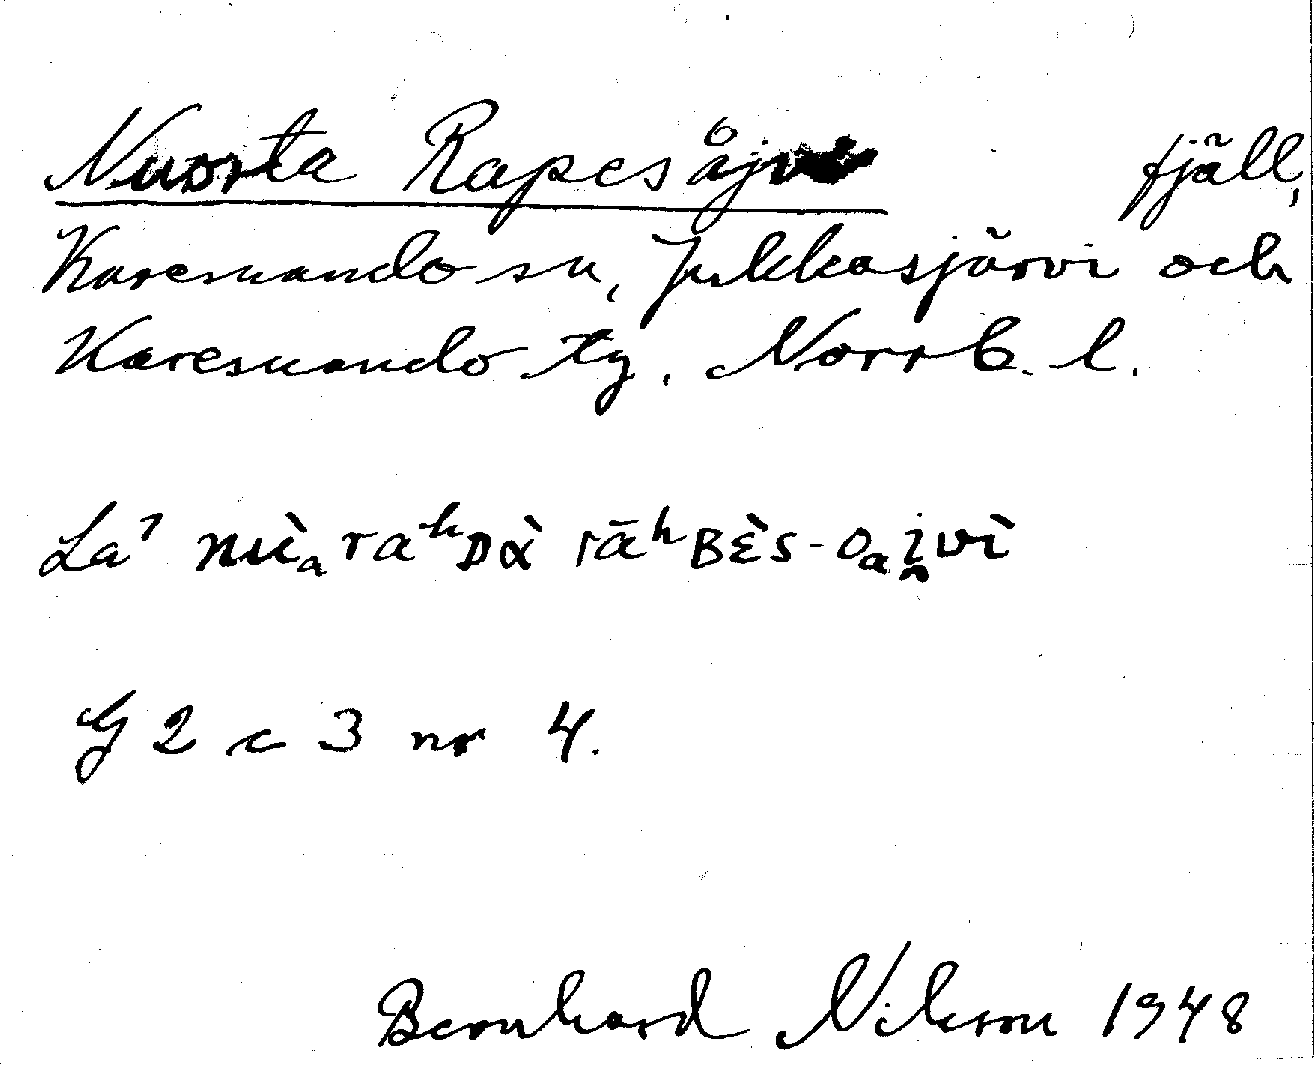 Nuorta Rapesåjve fjäll,
Karesuando sn, Jukkasjärvi och
Karesuando tg. Norrb. l.
La⁷ nùₐraʰDὰ rāʰBɛ̀s-oₐi̯vì
G 2 c 3 nr 4.
Bernhard Nilsson 1948